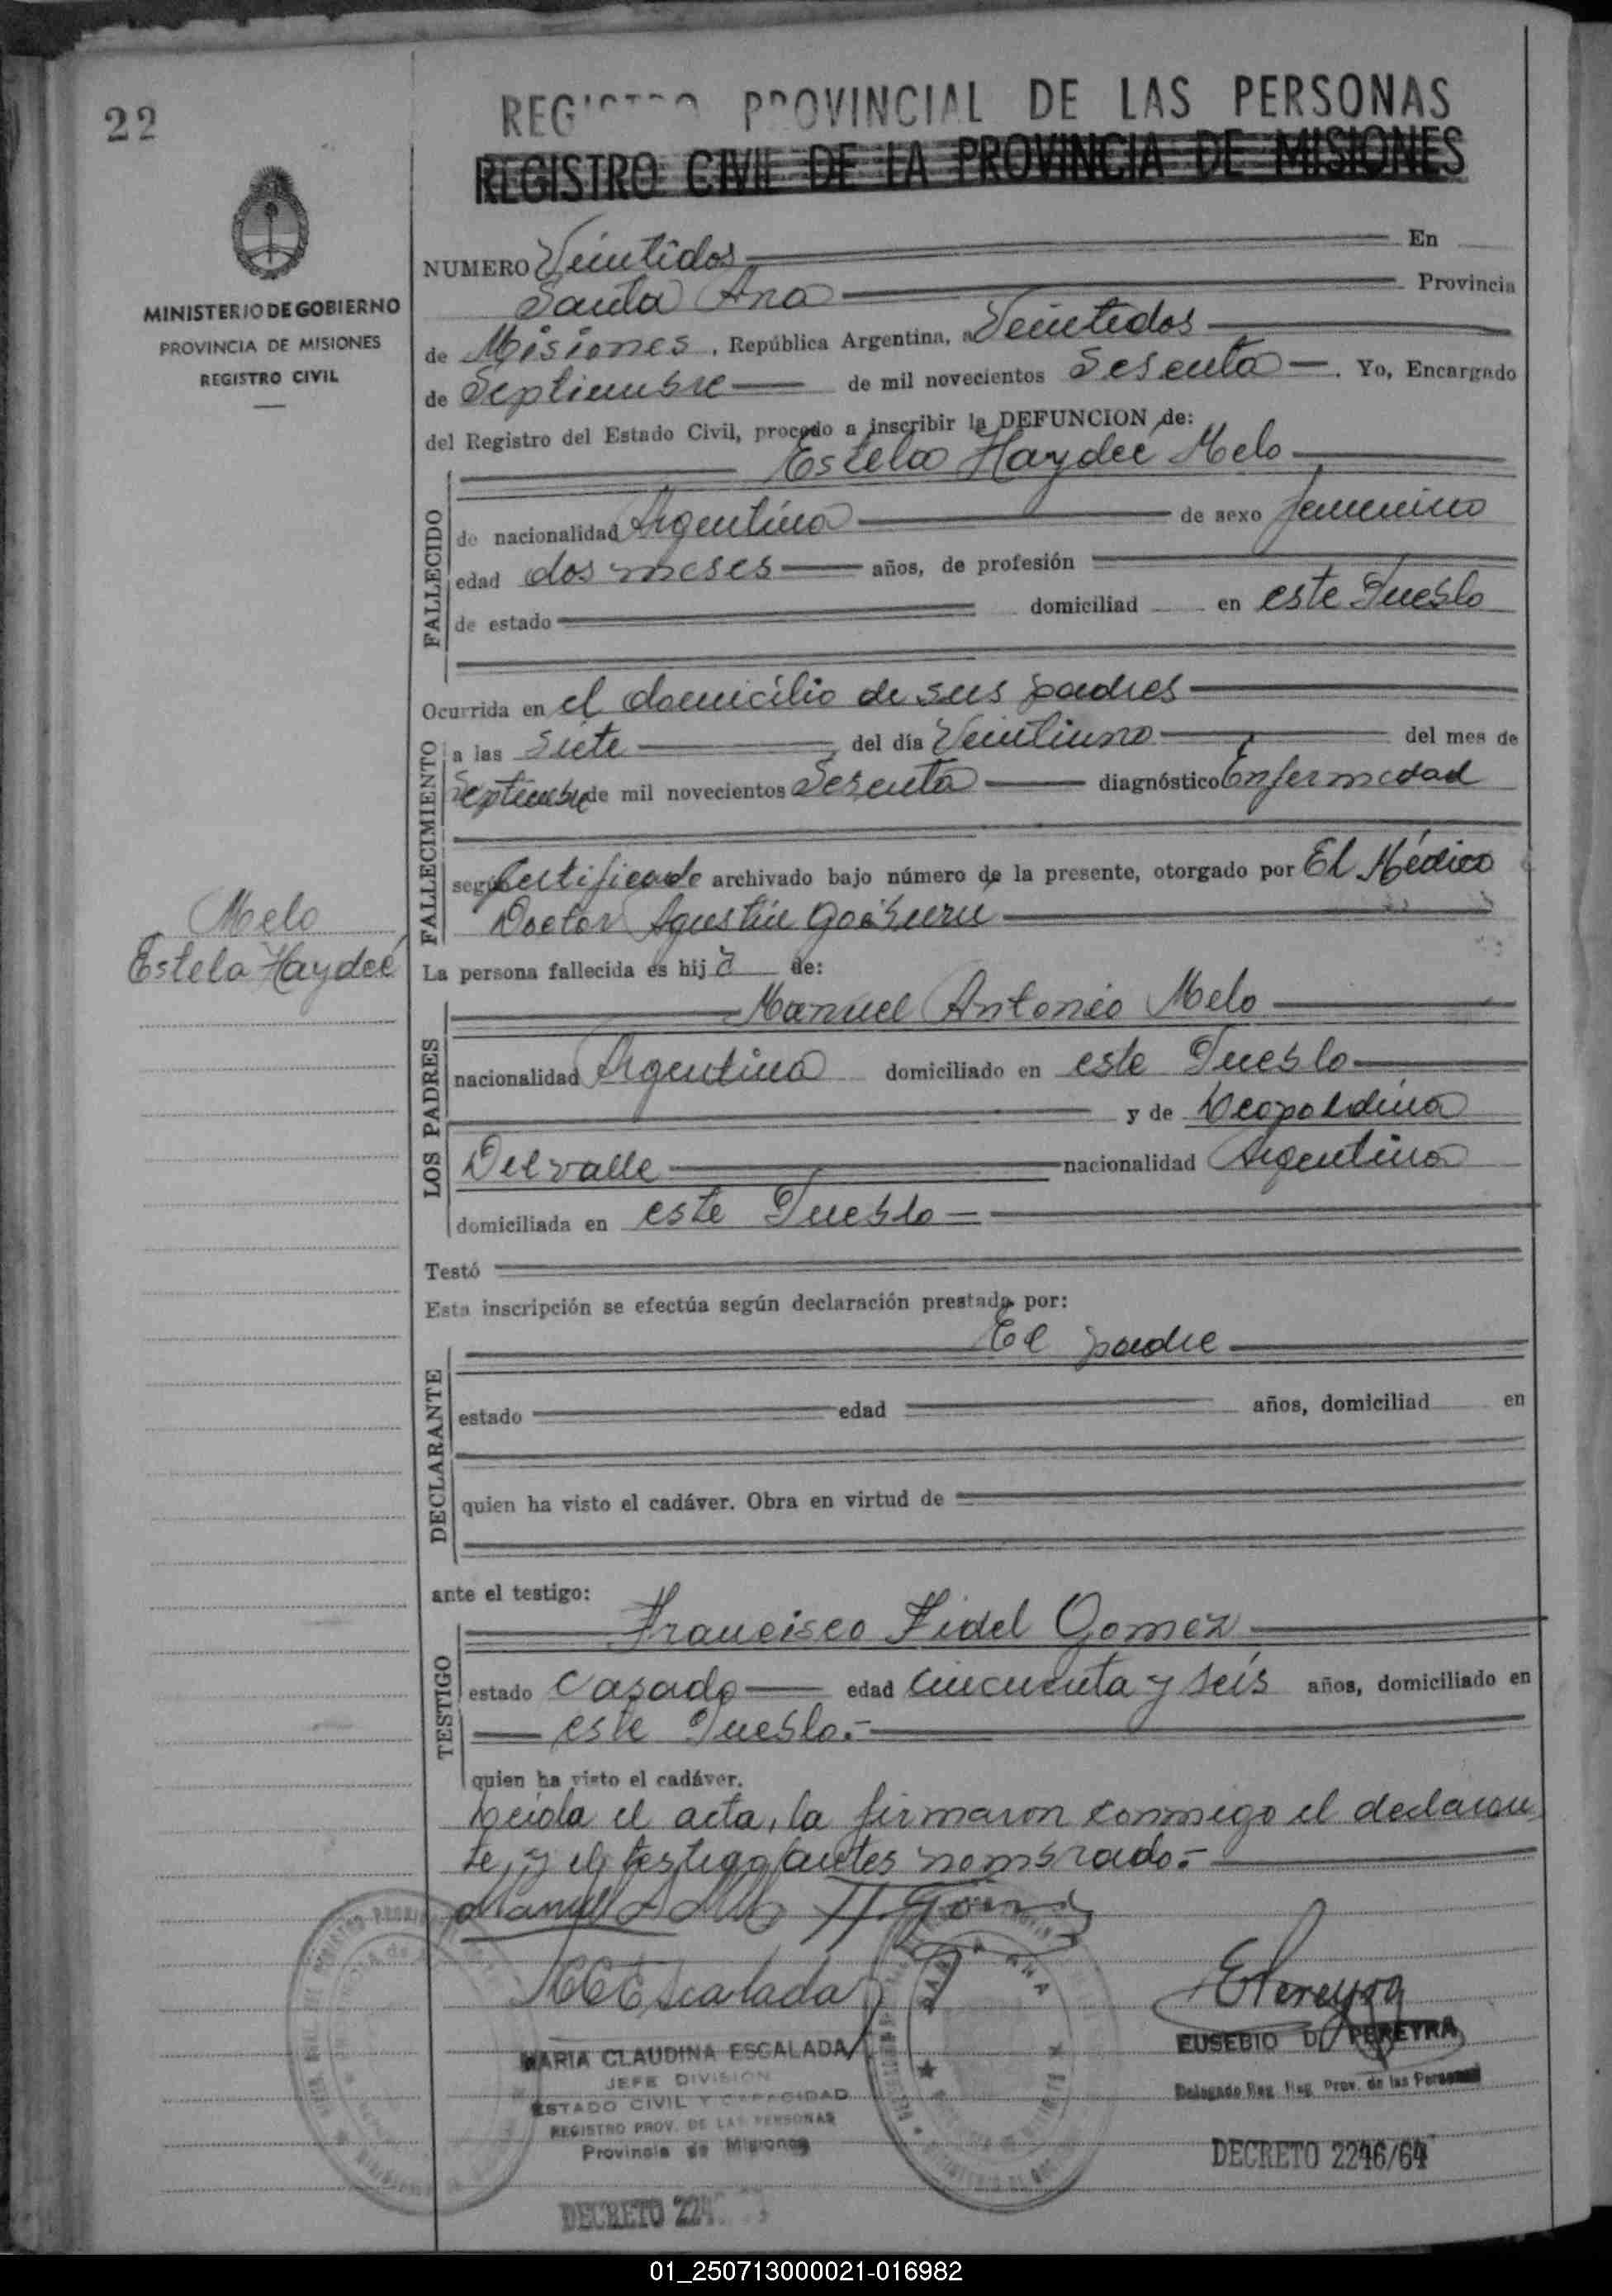 22
REGISTRO PROVINCIAL DE LAS PERSONAS
REGISTRO CIVIL DE LA PROVINCIA DE MISIONES
MINISTERIO DE GOBIERNO
PROVINCIA DE MISIONES
REGISTRO CIVIL
NUMERO Veintidos En
Santa Ana Provincia
de Misiones, República Argentina, a Veintidos
de Septiembre de mil novecientos Sesenta. Yo, Encargado
del Registro del Estado Civil, procedo a inscribir la DEFUNCION de:
Estela Haydeé Melo
FALLECIDO
de nacionalidad Argentina de sexo femenino
edad dos meses años, de profesión
de estado domiciliad en este Pueblo
Ocurrida en el domicilio de sus padres
FALLECIMIENTO
a las Siete del día Veintiuno del mes de
Septiembre de mil novecientos Sesenta diagnóstico Enfermedad
según Certificado archivado bajo número de la presente, otorgado por El Médico
Doctor Agustín
Melo
Estela Haydeé
La persona fallecida es hija de:
Manuel Antonio Melo
LOS PADRES
nacionalidad Argentina domiciliado en este Pueblo
y de Leopoldina
Delvalle nacionalidad Argentina
domiciliada en este Pueblo
Testó
Esta inscripción se efectúa según declaración prestada por:
El padre
DECLARANTE
estado edad años, domiciliad en
quien ha visto el cadáver. Obra en virtud de
ante el testigo:
Francisco Fidel Gomez
TESTIGO
estado Casado edad cincuenta y seis años, domiciliado en
este Pueblo.-
quien ha visto el cadáver.
Leida el acta, la firmaron conmigo el declaran
te, y el testigo antes nombrado.-
Manuel A Melo F.F. Gomez
MCEscalada
EPereyra
MARIA CLAUDINA ESCALADA
JEFE DIVISION
ESTADO CIVIL Y CAPACIDAD
REGISTRO PROV. DE LAS PERSONAS
Provincia de Misiones
EUSEBIO D. PEREYRA
Delegado Reg. Prov. de las Personas
SANTA ANA
DECRETO 2246/64
DECRETO 224
01_250713000021-016982